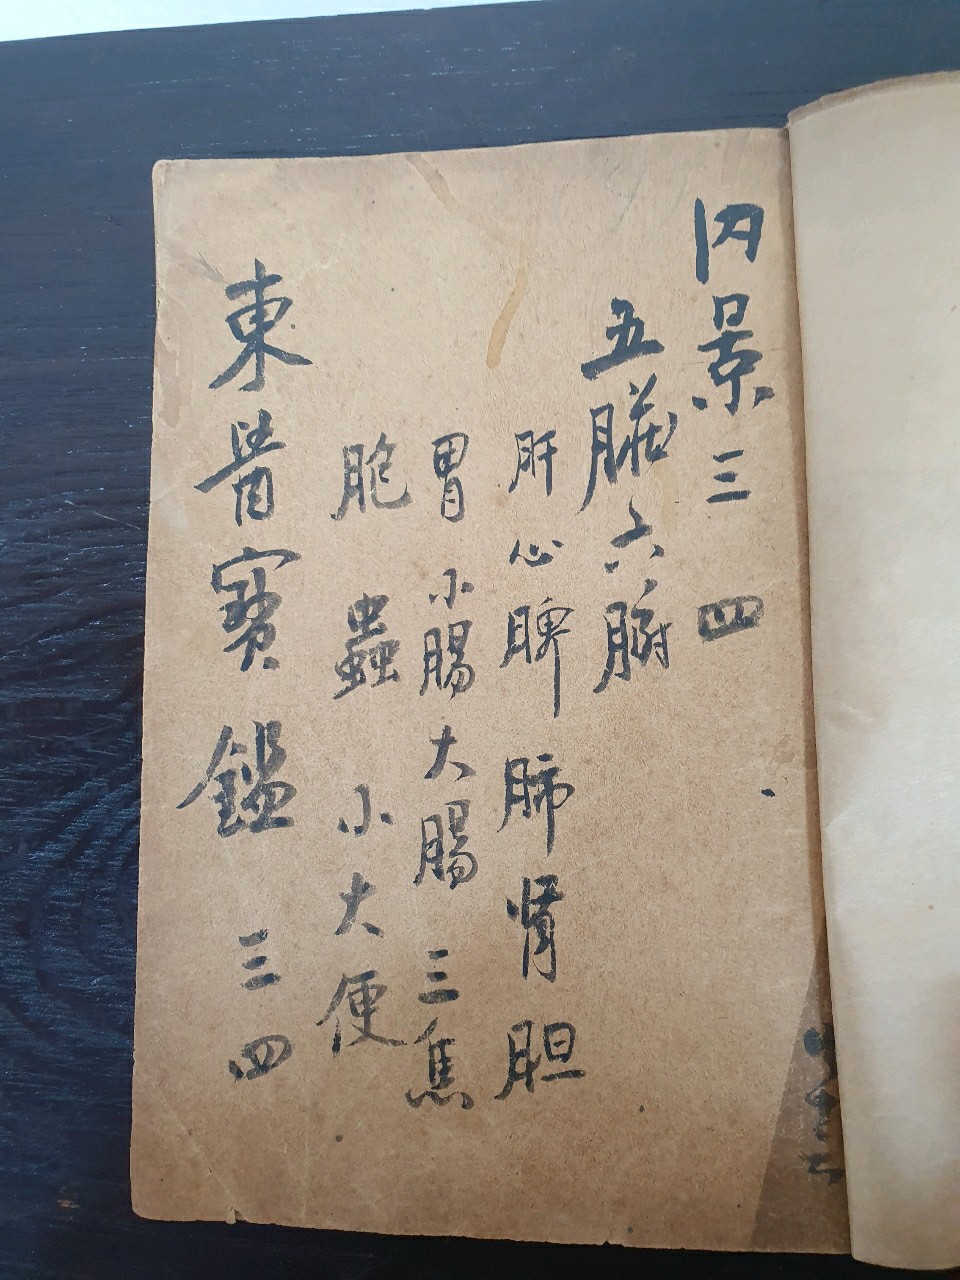 内景三四
五臟六腑
肝心脾肺腎胆
胃小腸大腸三焦
胞蟲小大便
東醫寶鑑三四